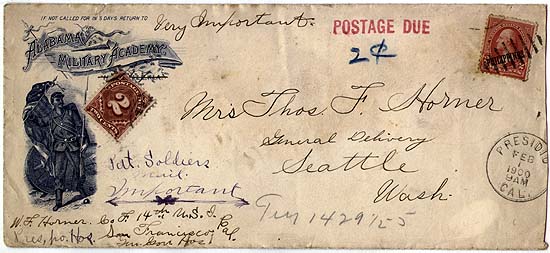 IF NOT CALLED FOR IN 5 DAYS RETURN TO
ALABAMA
MILITARY ACADEMY,
Very Important.
POSTAGE DUE
2¢
2
Mrs Thos. F. Horner
General Delivery
Seattle
Wash.
PRESIDIO
FEB
1
1900
9AM
CAL.
Soldiers
Mail.
Important
W. F. Horner. Co F 14th U.S.I.
Pres, po. Hos. San Francisco, Cal
Gen Hos
Try 1429 1st